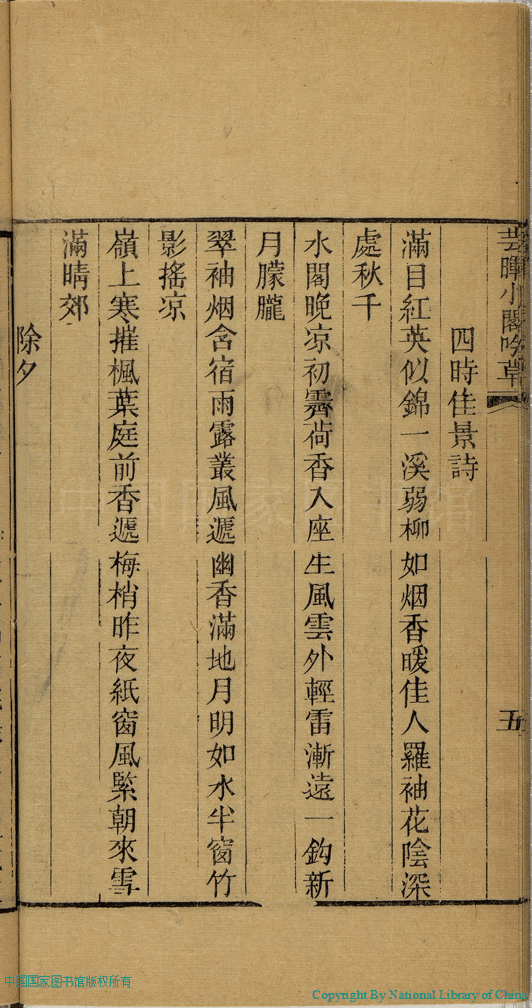 芸暉小閣吟草
五
四時佳景詩
滿目紅英似錦一溪弱柳如烟香暖佳人羅袖花陰深
處秋千
水閣晚凉初霽荷香入座生風雲外輕雷漸遠一鈎新
月朦朧
翠袖烟含宿雨露叢風遞幽香滿地月明如水半窗竹
影搖凉
嶺上寒摧楓葉庭前香遞梅梢昨夜紙窗風緊朝來雪
滿晴郊
除夕
中国国家图书馆版权所有
Copyright By National Library of China